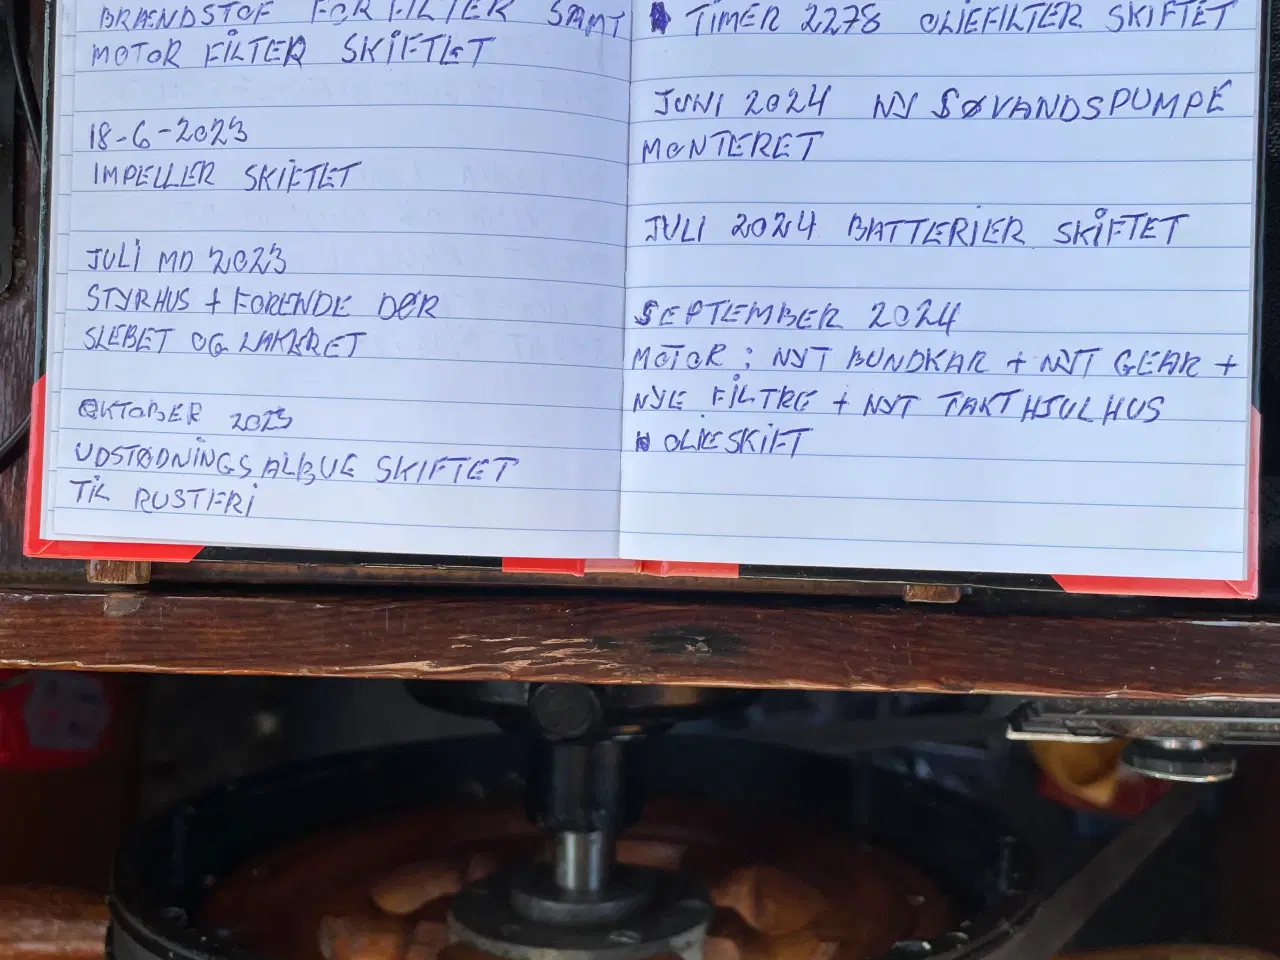 BRÆNDSTOF FORFILTER SAMT
MOTOR FILTER SKIFTET
18-6-2023
IMPELLER SKIFTET
JULI MD 2023
STYRHUS + FORENDE DØR
SLEBET OG LAKERET
OKTOBER 2023
UDSTØDNINGSALBUE SKIFTET
TIL RUSTFRI
TIMER 2278 OLIEFILTER SKIFTET
JUNI 2024 NY SØVANDSPUMPE
MONTERET
JULI 2024 BATTERIER SKIFTET
SEPTEMBER 2024
MOTOR: NYT BUNDKAR + NYT GEAR +
NYE FILTRE + NYT TAKTHJULHUS
OLIESKIFT